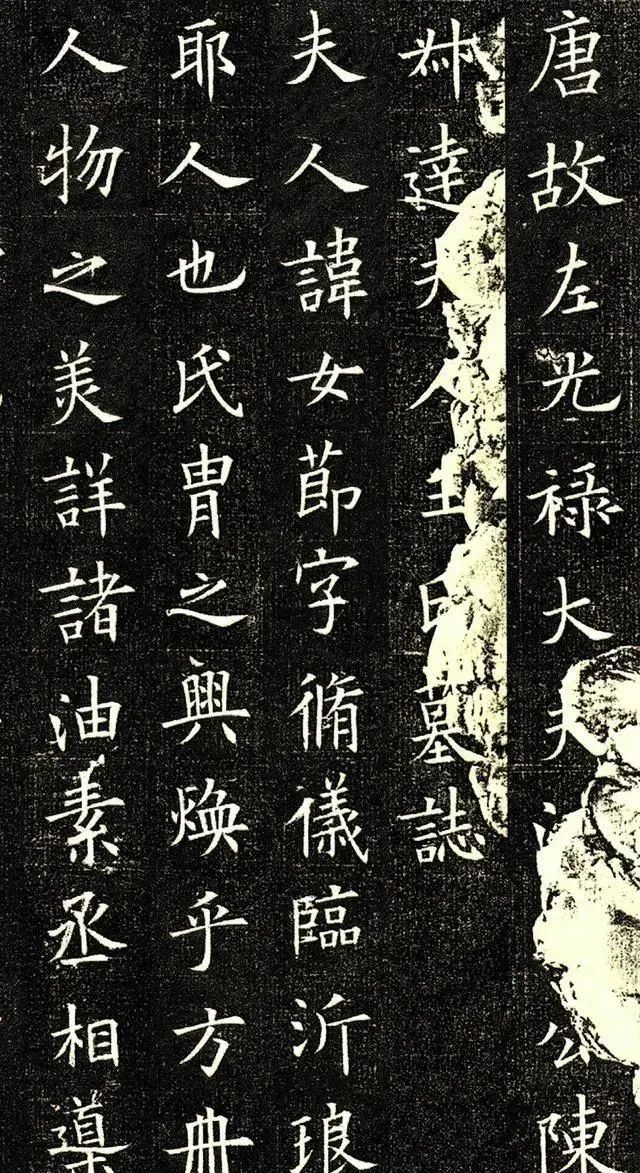 唐故左光禄大夫公陳
叔達夫人王氏墓誌
夫人諱女節字脩儀臨沂琅
耶人也氏胄之興焕乎方冊
人物之美詳諸油素丞相導